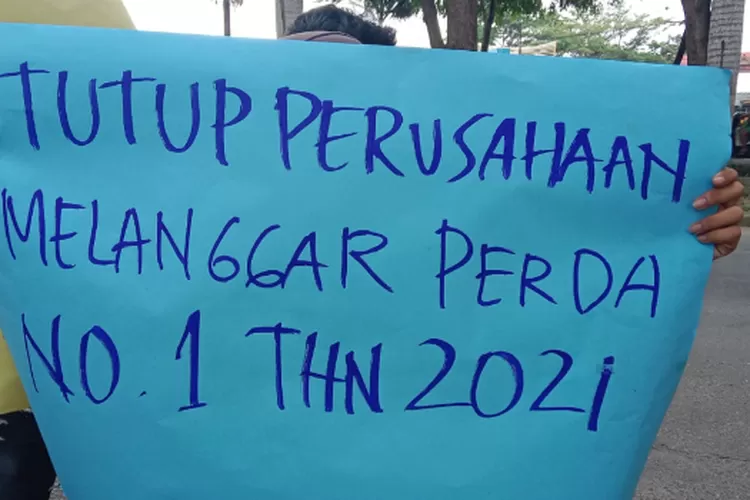 TUTUP PERUSAHAAN
MELANGGAR PERDA
NO. 1 THN 2021